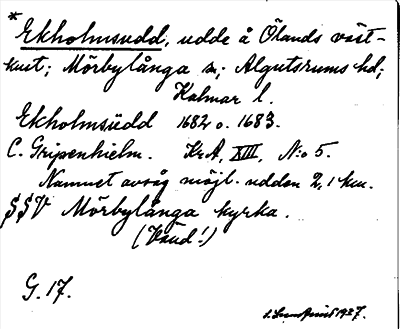 *Ekholmsudd, udde å Ölands väst-
kust; Mörbylånga sn; Algutsrums hd;
Kalmar l.
Ekholmsüdd 1682 o. 1683.
C. Gripenhielm. KrA, XIII, N:o 5.
Namnet avsåg möjl. udden 2,1 km.
SSV Mörbylånga kyrka.
(Vaud!)
G. 17.
1927.